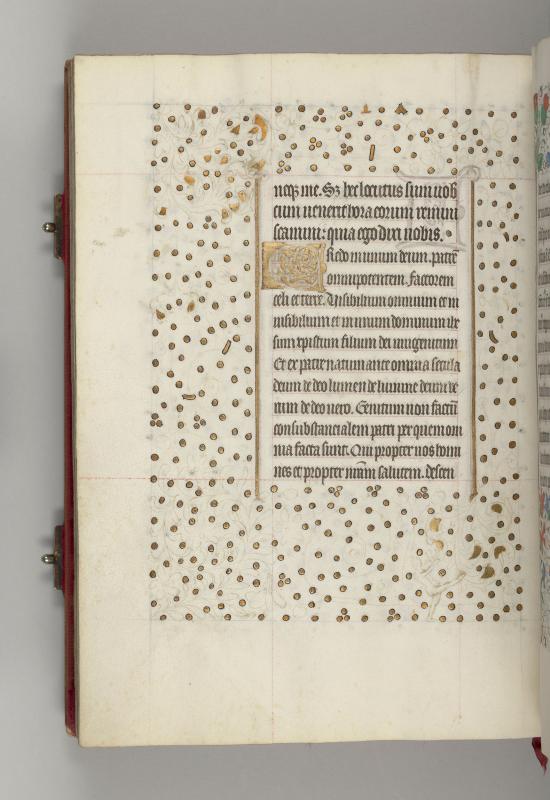 neq̃ me. Sꝫ hec locutus sum uob̃
cum uenerit hora eorum remini
scamini: quia ego dixi uobis.
Credo in unum deum. patrẽ
omnipotentem. factorem
celi et terre. Uisibilium omnium et in
uisibilium et in unum dominum ihe
sum xpistum filium dei unigenitum
Et ex patre natum ante omnia secula
deum de deo lumen de lumine deum ue
rum de deo uero. Genitum non factũ
consubstantialem patri per quem om
nia facta sunt. Qui propter nos homi
nes et propter nr̃am salutem. descen